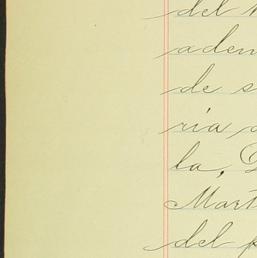 del
aden
de s
ria
la,
Mart
del